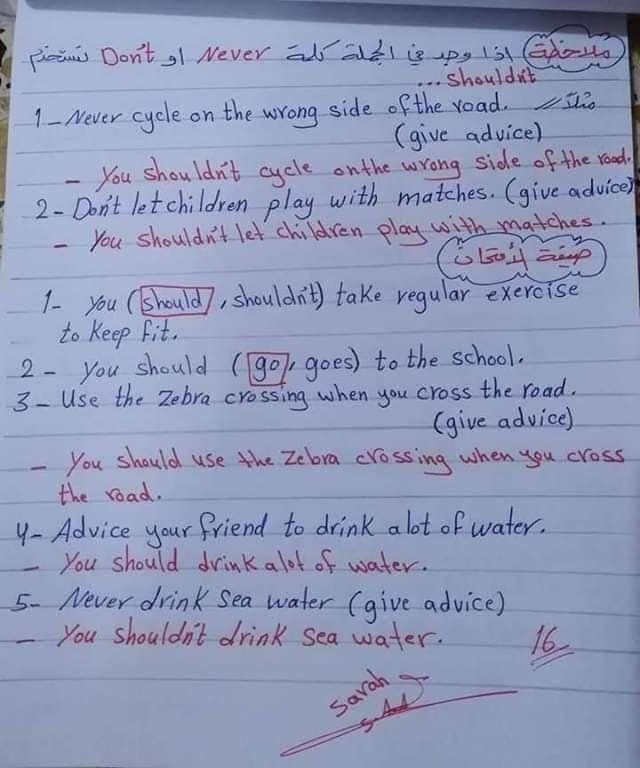 ملاحظة اذا وجد في الجملة كلمة Never او Don't نستخدم
Shouldn't ...
1- Never cycle on the wrong side of the road. مثلاً
(give advice)
- You shouldn't cycle on the wrong side of the road.
2- Don't let children play with matches. (give advice)
- You shouldn't let children play with matches.
صيغة الأمتحان
1- You (should, shouldn't) take regular exercise
to keep fit.
2- You should (go, goes) to the school.
3- Use the Zebra crossing when you cross the road.
(give advice)
- You should use the Zebra crossing when you cross
the road.
4- Advice your friend to drink alot of water.
- You should drink alot of water.
5- Never drink Sea water (give advice)
- You shouldn't drink Sea water.
16
Sarah